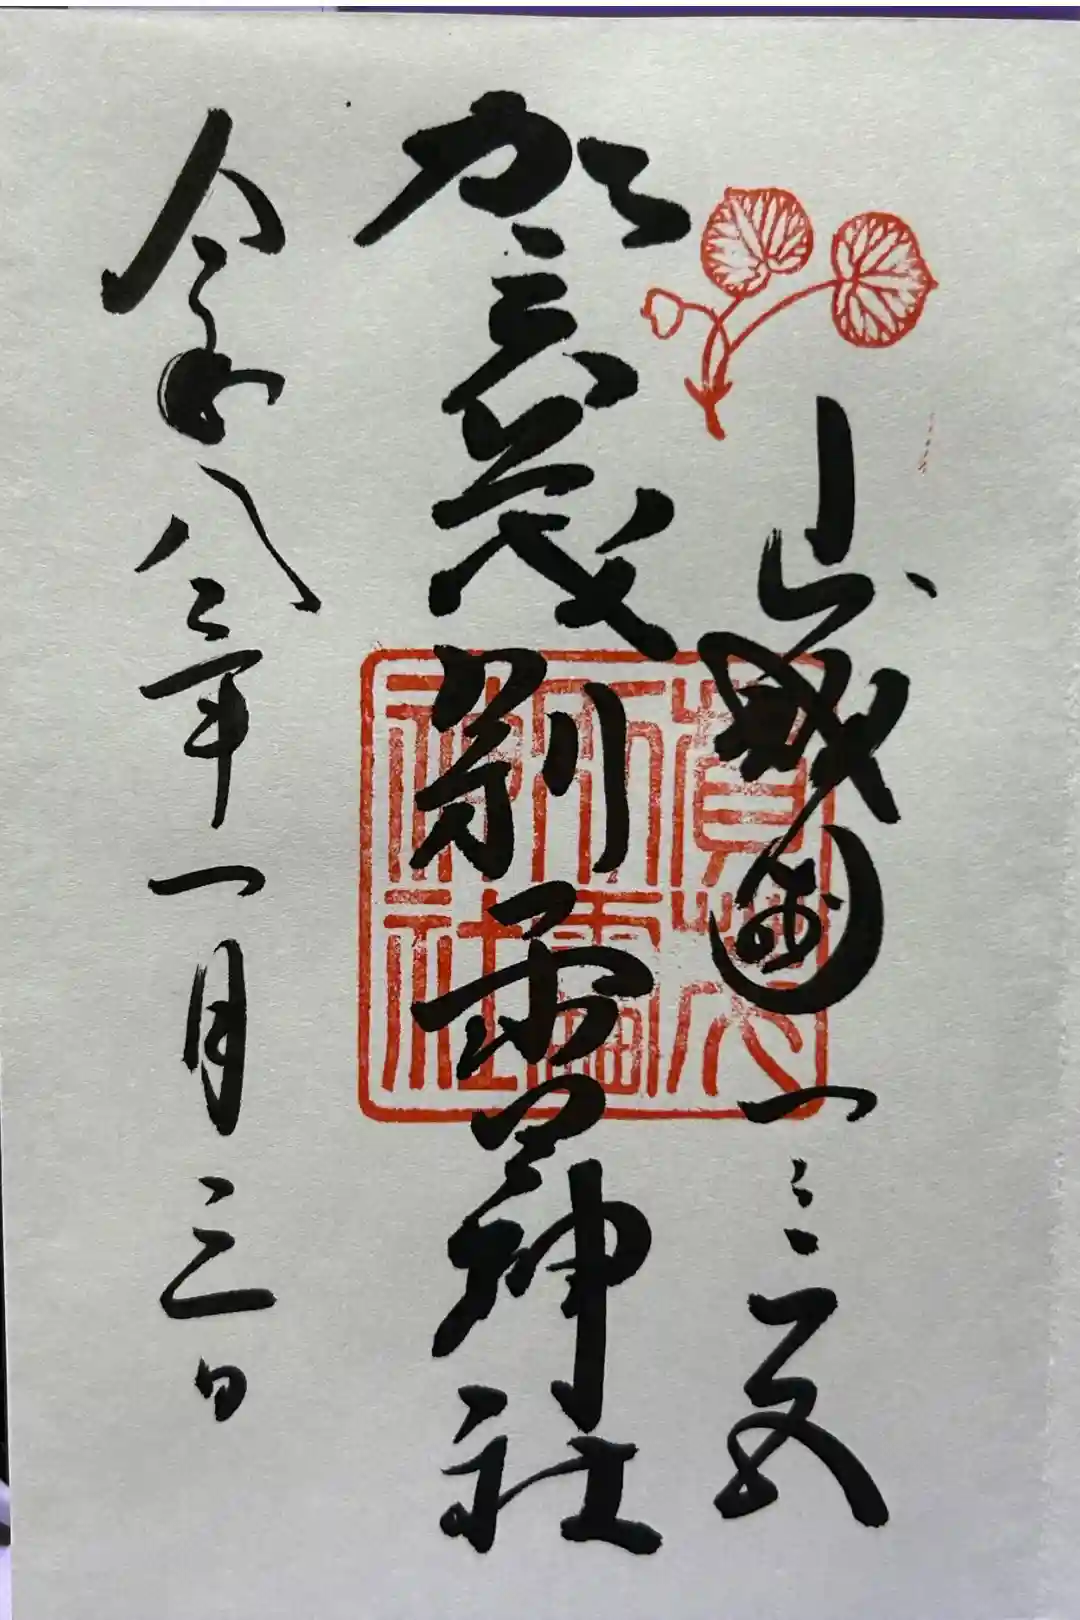 山城國一之宮
賀茂別雷神社
令和八年一月三日
賀茂別雷神社